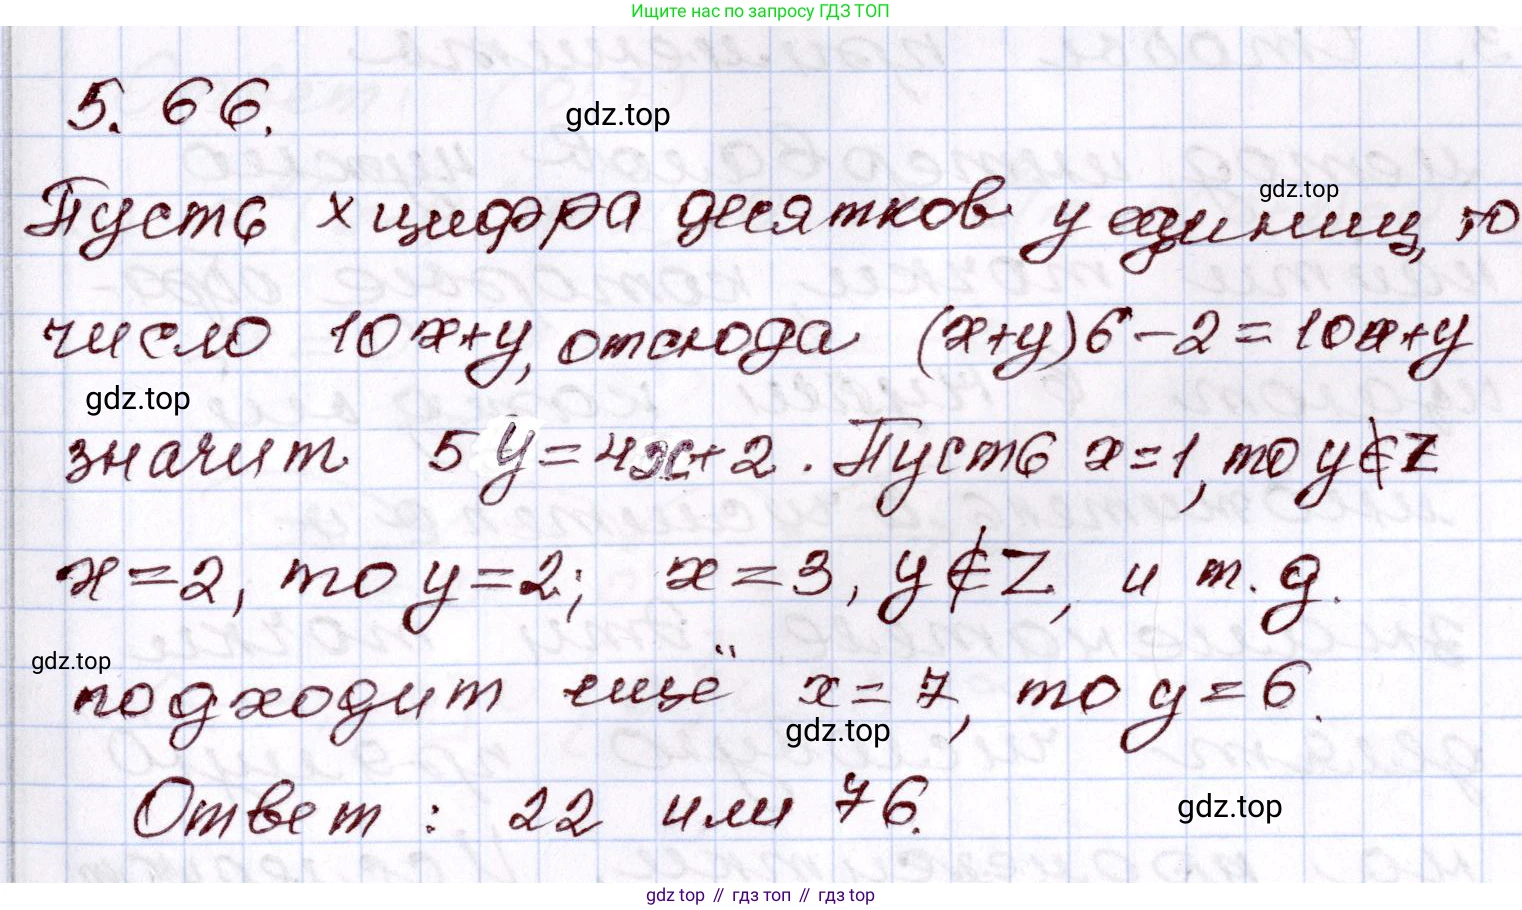 Ищите нас по запросу ГДЗ ТОП
5.66.
gdz.top
gdz.top
Пусть x цифра десятков y единиц, то
число 10x+y, отсюда (x+y)6-2=10x+y
gdz.top
значит 5y=4x+2. Пусть x=1, то y∉Z
x=2, то y=2; x=3, y∉Z, и т.д.
gdz.top
подходит ещё x=7, то y=6.
gdz.top
Ответ: 22 или 76.
gdz.top
gdz top // гдз топ // гдз top